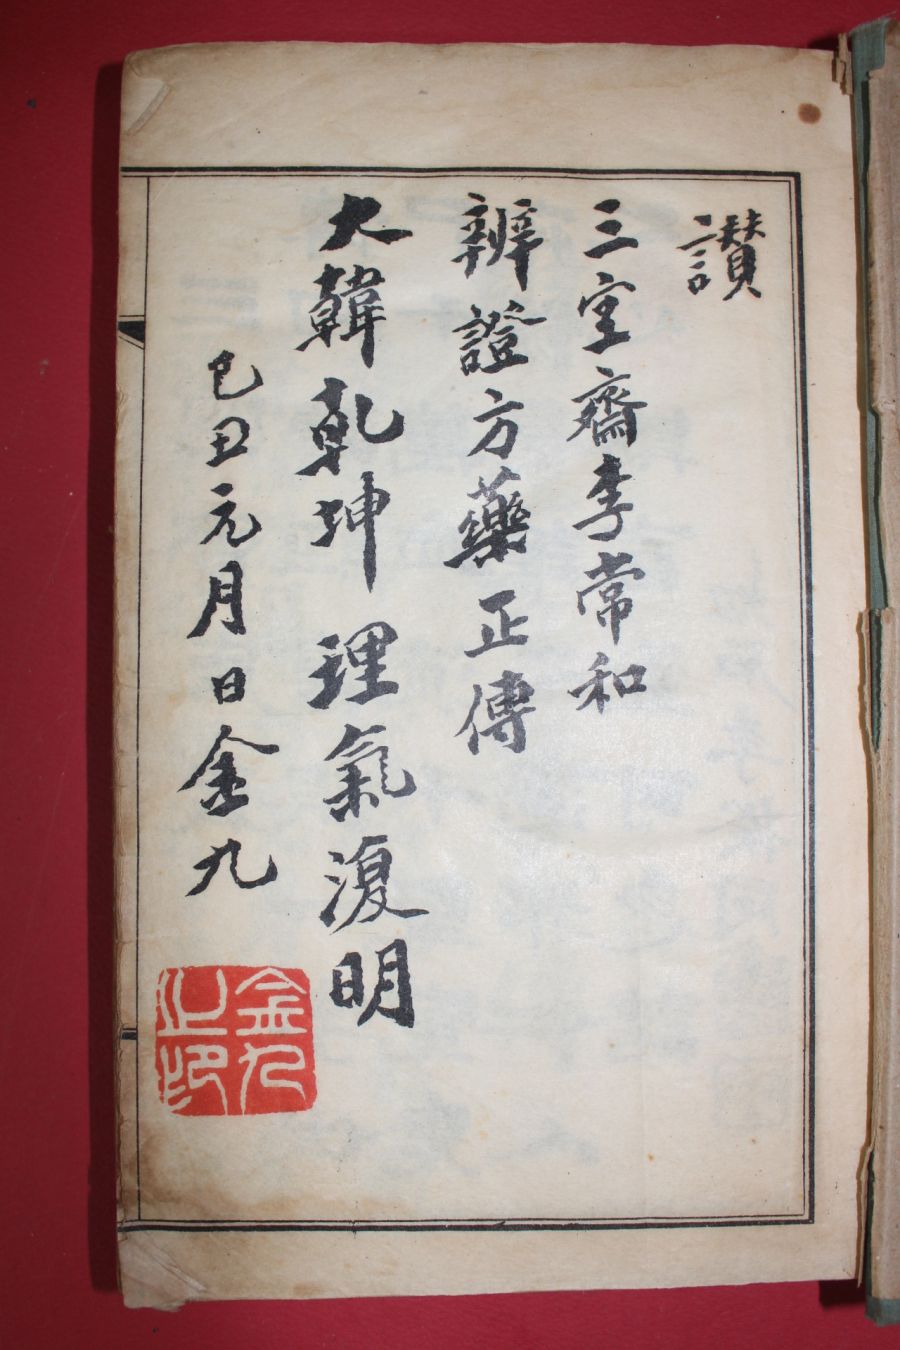 讃
三室齋李常和
辨證方藥正傳
大韓乾坤理氣復明
己丑元月日金九
金九
之印